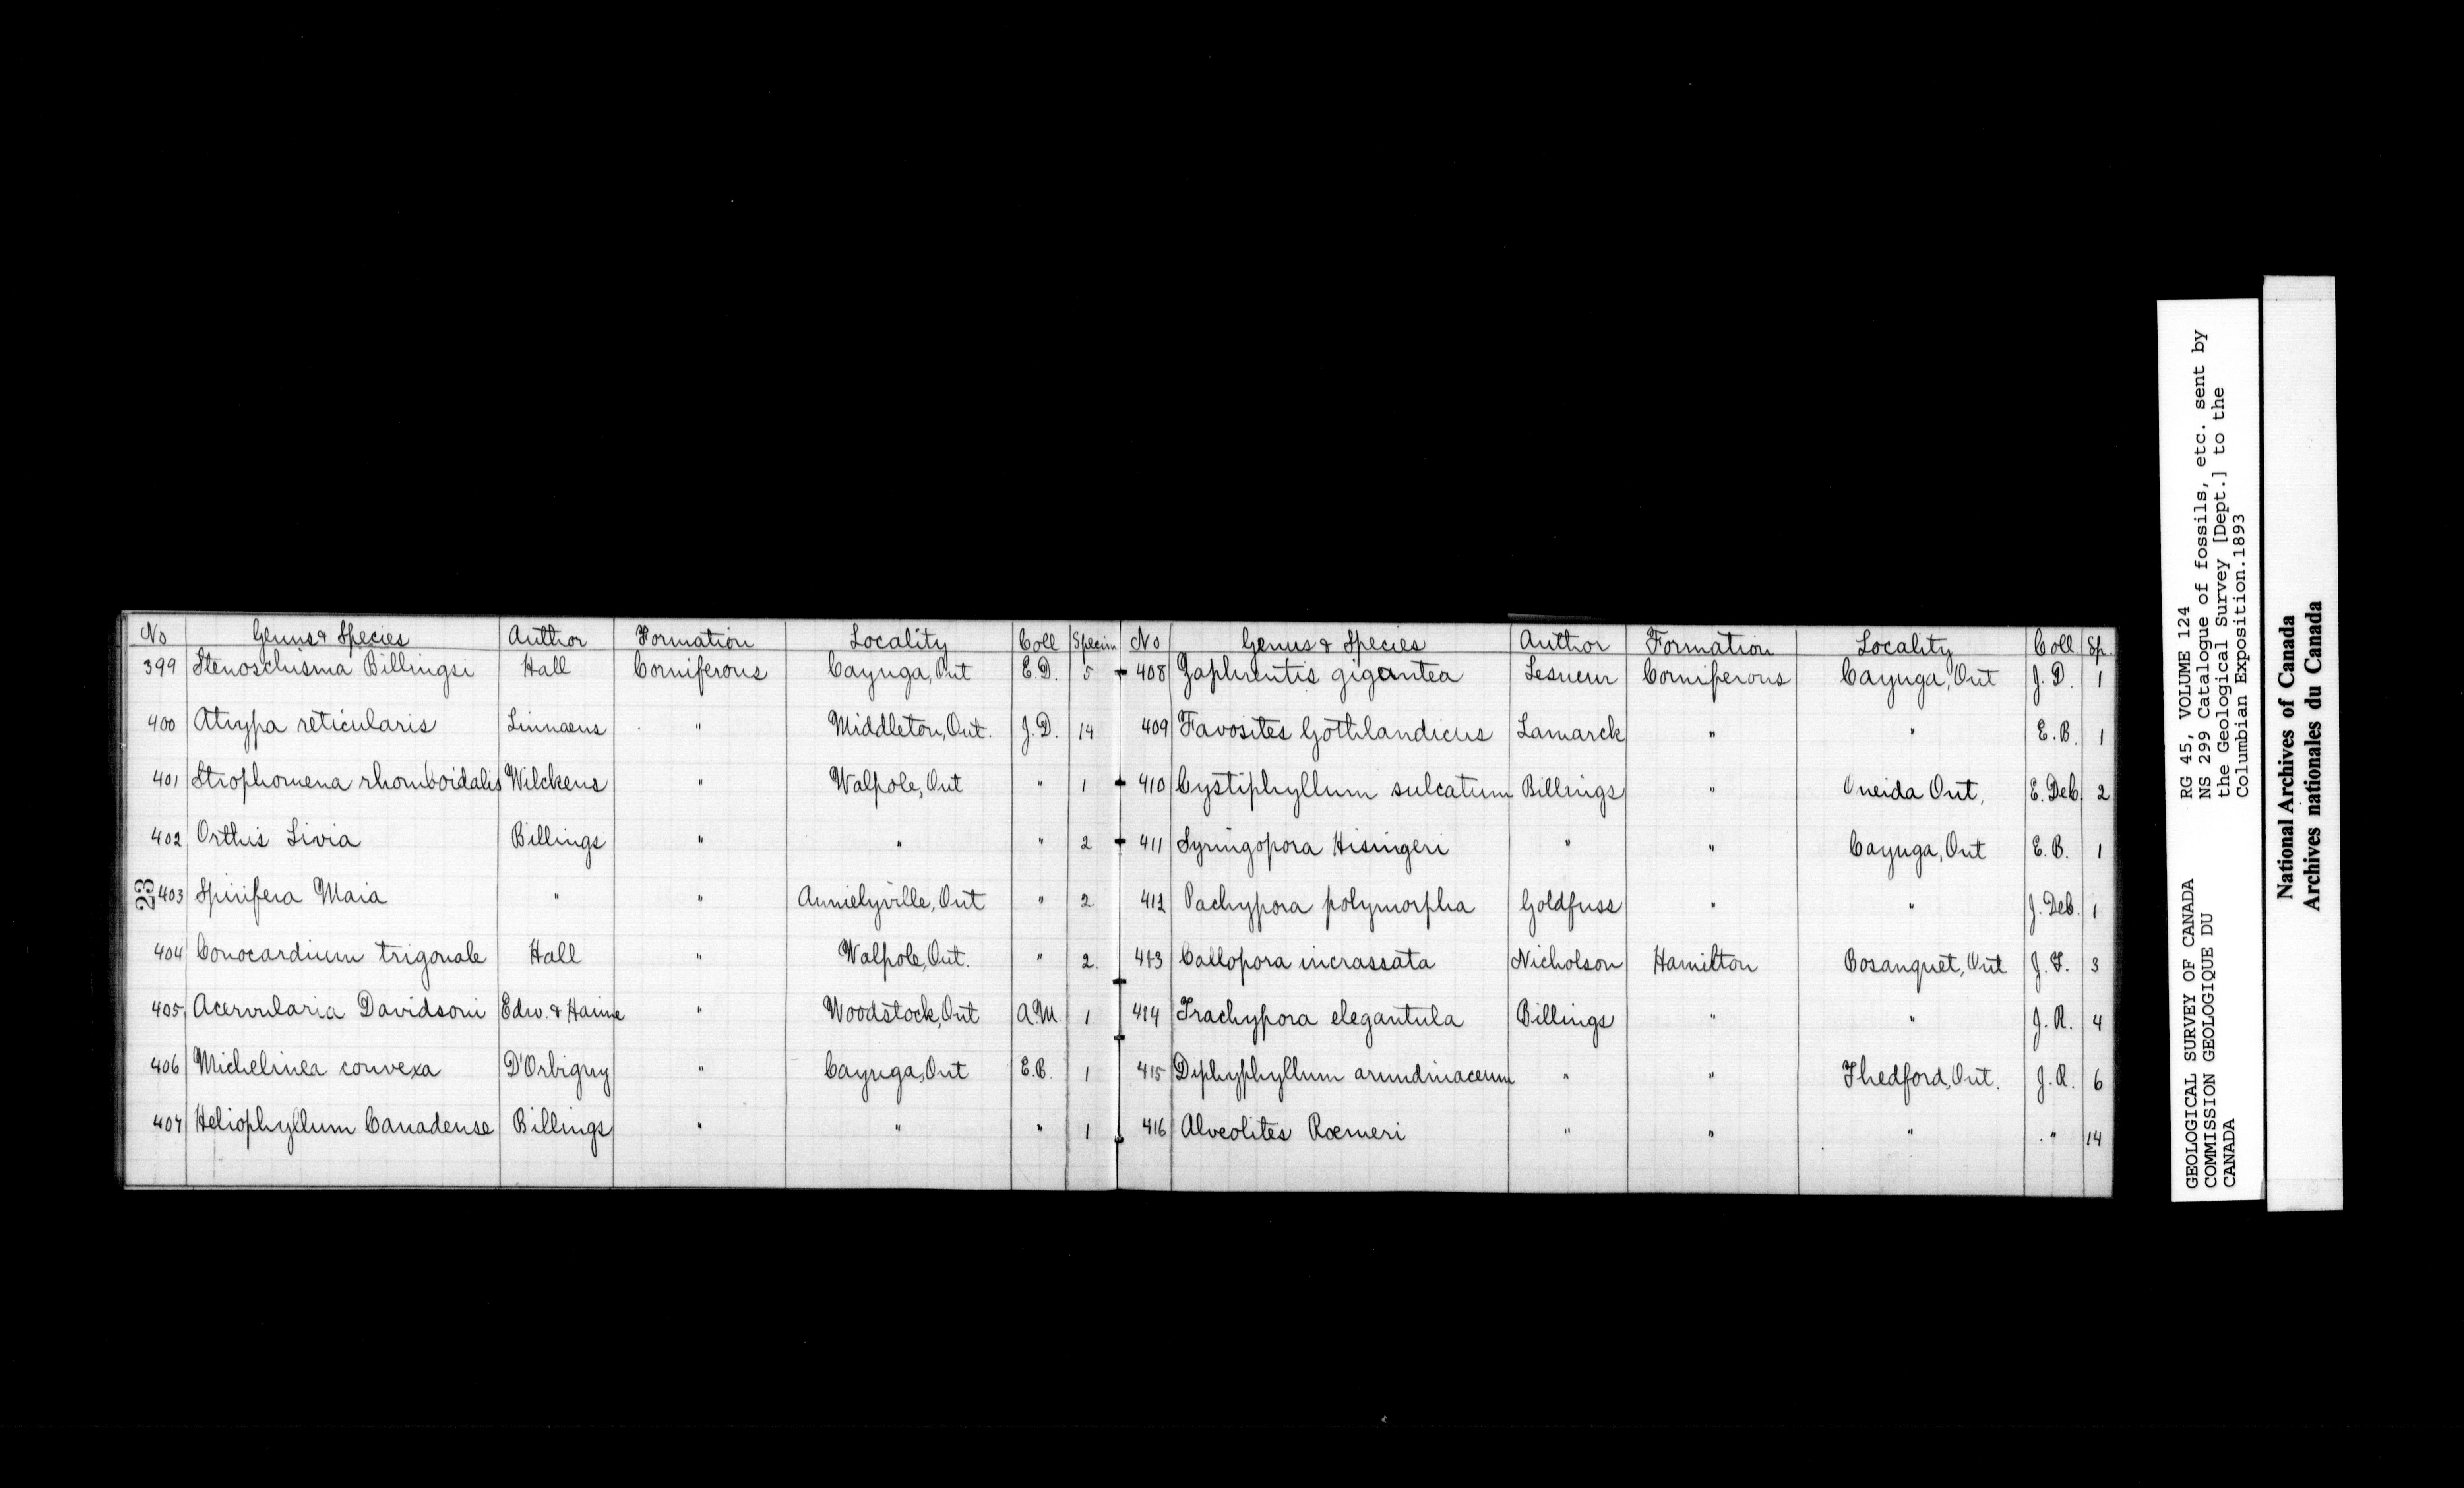 No Genus & Species Author Formation Locality Coll Specim
399 Stenoschisma Billingsi Hall Corniferous Cayuga, Ont E.D. 5
400 Atrypa reticularis Linnaeus " Middleton, Ont. J.D. 14
401 Strophomena rhomboidalis Wilckens " Walpole, Ont " 1
402 Orthis Livia Billings " " " 2
23
403 Spirifera Maia " " Annielyville, Ont " 2
404 Conocardium trigonale Hall " Walpole, Ont. " 2
405 Acervularia Davidsoni Edw. & Haime " Woodstock, Ont A.M. 1
406 Michelinea convexa D'Orbigny " Cayuga, Ont E.B. 1
407 Heliophyllum Canadense Billings " " " 1
No Genus & Species Author Formation Locality Coll Sp.
408 Zaphrentis gigantea Lesueur Corniferous Cayuga, Ont J.D. 1
409 Favosites Gothlandicus Lamarck " " E.B. 1
410 Cystiphyllum sulcatum Billings " Oneida Ont, E. DeC. 2
411 Syringopora Hisingeri " " Cayuga, Ont E.B. 1
412 Pachypora polymorpha Goldfuss " " J. DeC. 1
413 Callopora incrassata Nicholson Hamilton Bosanquet, Ont 3
414 Trachypora elegantula Billings " " J.R. 4
415 Diphyphyllum arundinaceum " " Thedford, Ont. J.R. 6
416 Alveolites Rœmeri " " " " 14
GEOLOGICAL SURVEY OF CANADA
COMMISSION GEOLOGIQUE DU
CANADA
RG 45, VOLUME 124
NS 299 Catalogue of fossils, etc. sent by
the Geological Survey [Dept.] to the
Columbian Exposition.1893
National Archives of Canada
Archives nationales du Canada